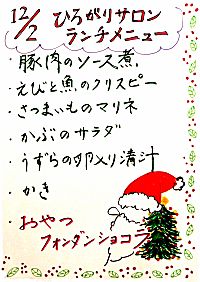 12/2 ひろがりサロン
ランチメニュー
・豚肉のソース煮
・えびと魚のクリスピー
・さつまいものマリネ
・かぶのサラダ
・うずらの卵入り清汁
・かき
・おやつ
フォンダンショコラ